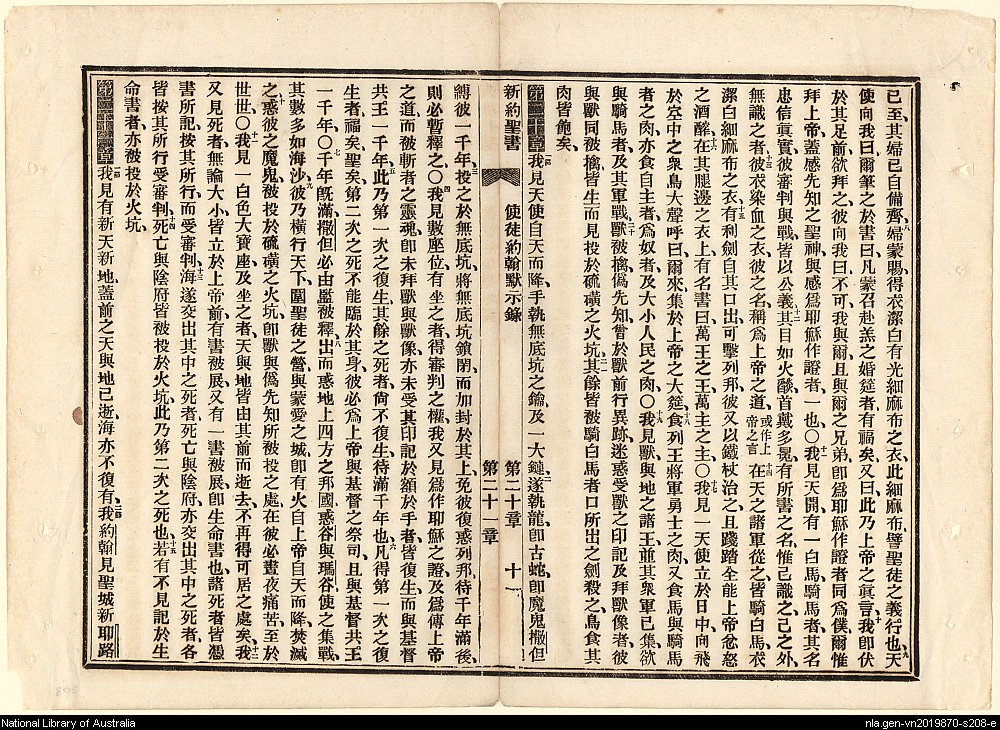 已至、其婦已自備齊、八婦蒙賜得衣潔白有光細麻布之衣、此細麻布譬聖徒之義行也、九天
使向我曰、爾筆之於書曰、凡蒙召赴羔之婚筵者有福矣、又曰、此乃上帝之眞言、十我卽伏
於其足前欲拜之、彼向我曰、不可、我與爾、且與爾之兄弟、卽爲耶穌作證者、同爲僕、爾惟
拜上帝、蓋感先知之聖神、與感爲耶穌作證者一也、〇十一我見天開、有一白馬、騎馬者、其名
忠信眞實、彼審判與戰、皆以公義、十二其目如火燄、首戴多冕、有所書之名、惟己識之、己之外、
無識之者、十三彼衣染血之衣、彼之名稱爲上帝之道、或作上帝之言十四在天之諸軍從之、皆騎白馬、衣
潔白細麻布之衣、十五有利劍自其口出、可擊列邦、彼又以鐵杖治之、且踐踏全能上帝忿怒
之酒醡、十六在其腿邊之衣上有名書曰、萬王之王、萬主之主、〇十七我見一天使立於日中、向飛
於空中之衆鳥大聲呼曰、爾來集於上帝之大筵、十八食列王將軍勇士之肉、又食馬與騎馬
者之肉、亦食自主者爲奴者、及大小人民之肉、〇十九我見獸與地之諸王、並其衆軍已集、欲
與騎馬者及其軍戰、二十獸被擒、僞先知曾於獸前行異跡、迷惑受獸之印記、及拜獸像者、彼
與獸同被擒、皆生而見投於硫磺之火坑、二一其餘皆被騎白馬者口所出之劍殺之、鳥食其
肉皆飽矣、
第二十章一節我見天使自天而降、手執無底坑之鑰、及一大鏈、二遂執龍、卽古蛇、卽魔鬼撒但
新約聖書 使徒約翰默示錄 第二十章 第二十一章 十一
縛彼一千年、三投之於無底坑、將無底坑鎖閉、而加封於其上、免彼復惑列邦、待千年滿後、
則必暫釋之、〇四我見數座位、有坐之者、得審判之權、我又見爲作耶穌之證、及爲傳上帝
之道、而被斬者之靈魂、卽未拜獸與獸像、亦未受其印記於額於手者、皆復生、而與基督
共王一千年、五此乃第一次之復生、其餘之死者、尙不復生、待滿千年也、六凡得第一次之復
生者福矣聖矣、第二次之死、不能臨於其身、彼必爲上帝與基督之祭司、且與基督共王
一千年、〇七千年旣滿、撒但必由監被釋、八出而惑地上四方之邦國、惑谷與瑪谷、使之集戰、
其數多如海沙、九彼乃橫行天下、圍聖徒之營、與蒙愛之城、卽有火自上帝自天而降、焚滅
之、十惑彼之魔鬼、被投於硫磺之火坑、卽獸與僞先知所被投之處、在彼必晝夜痛苦、至於
世世、〇十一我見一白色大寶座、及坐之者、天與地皆由其前而逝去、不再得可居之處矣、十二我
又見死者、無論大小、皆立於上帝前、有書被展、又有一書被展、卽生命書也、諸死者皆憑
書所記、按其所行、而受審判、十三海遂交出其中之死者、死亡與陰府、亦交出其中之死者、各
皆按其所行受審判、十四死亡與陰府皆被投於火坑、此乃第二次之死也、十五若有不見記於生
命書者、亦被投於火坑、
第二十一章一節我見有新天新地、蓋前之天與地已逝、海亦不復有、二節我約翰見聖城新耶路
National Library of Australia
nla.gen-vn2019870-s208-e